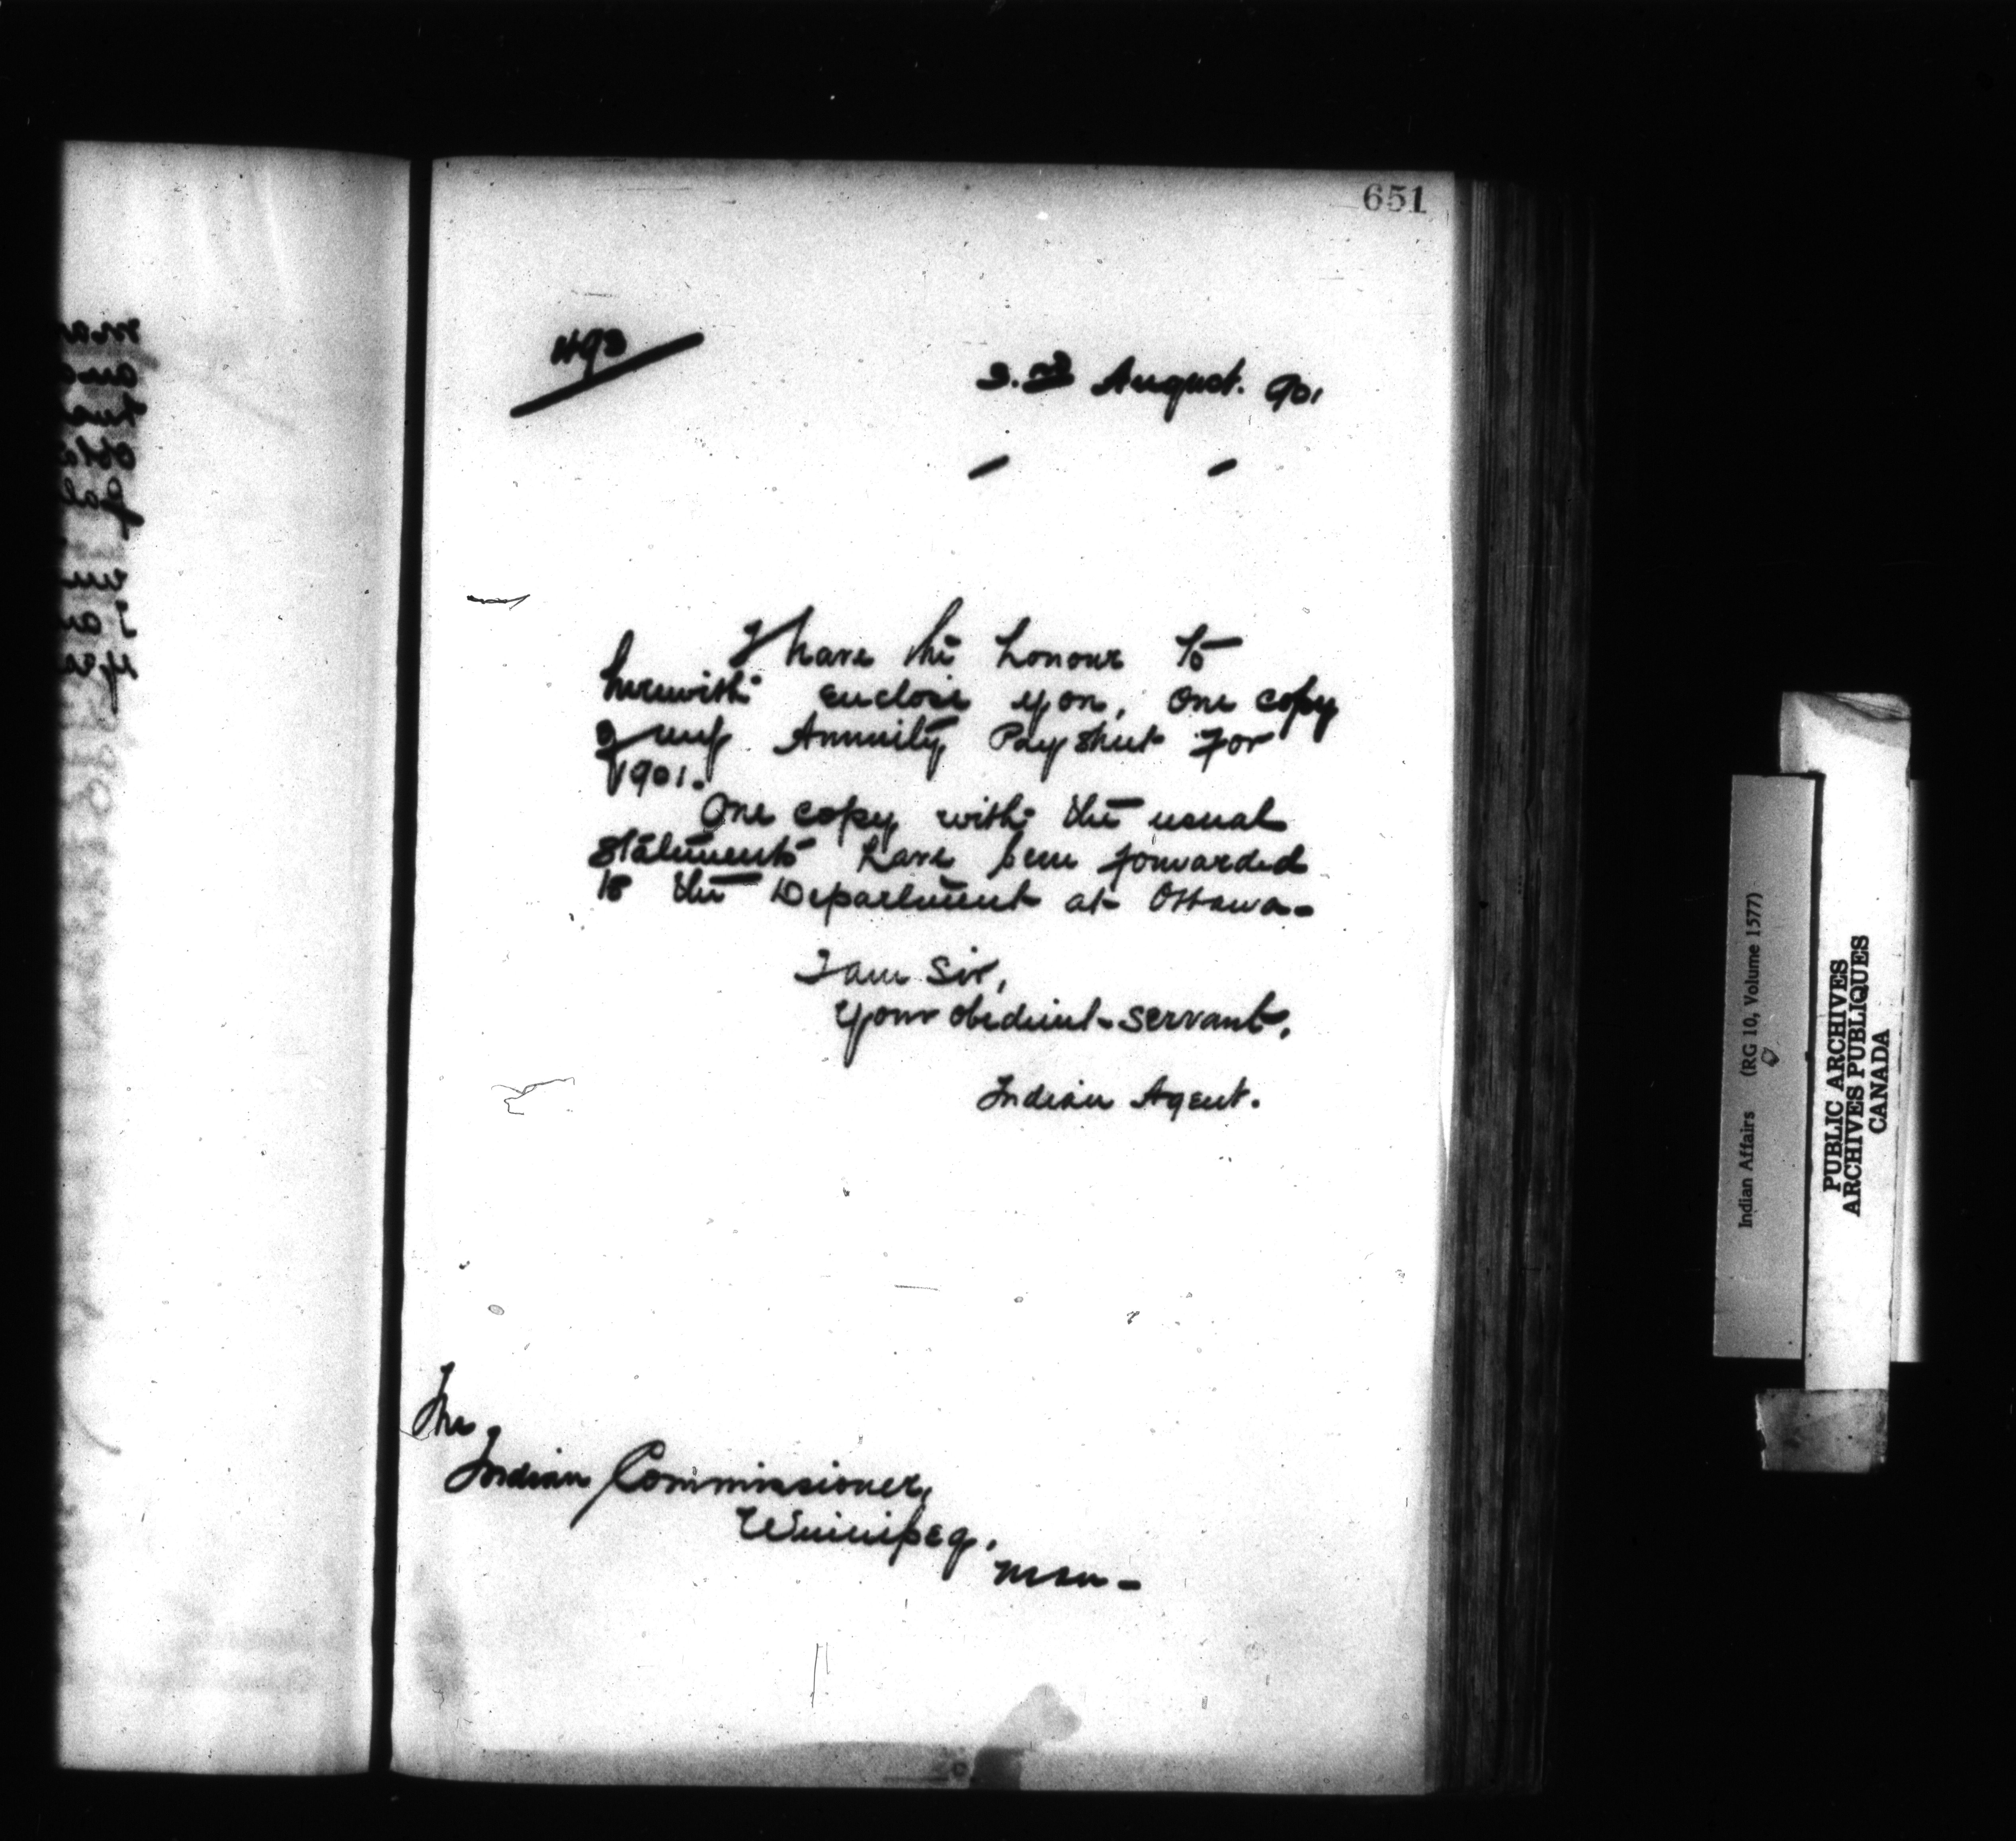 651
493
3.rd August. 901
I have the honour to
herewith enclose you, one copy
of my Annuity Pay Sheet for
1901.
One copy with the usual
Statements have been forwarded
to the Department at Ottawa-
I am Sir,
Your obedient servant,
Indian Agent.
The
Indian Commissioner,
Winnipeg,
Man-
Indian Affairs (RG 10, Volume 1577)
PUBLIC ARCHIVES
ARCHIVES PUBLIQUES
CANADA